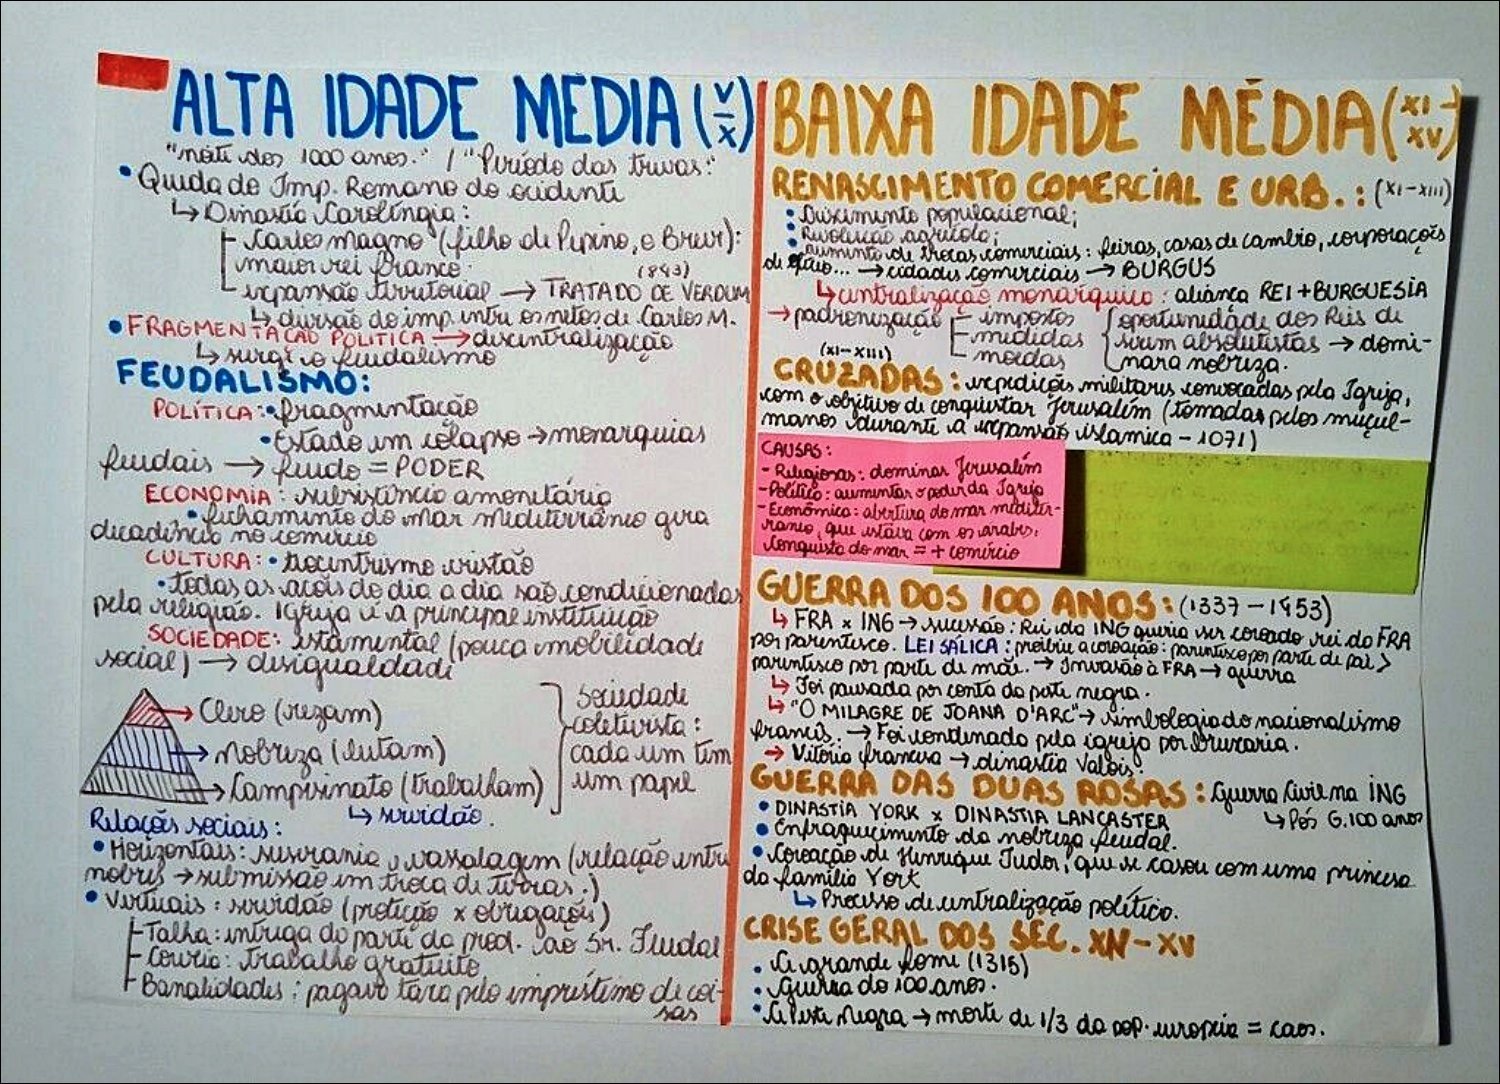 ALTA IDADE MÉDIA (V – X)
"noite dos 1000 anos." / "Período das trevas."
• Queda do Imp. Romano do ocidente
↳ Dinastia Carolíngia:
Carlos magno (filho de Pepino, o Breve):
maior rei franco.
(843)
expansão territorial → TRATADO DE VERDUM
↳ divisão do imp. entre os netos de Carlos M.
• FRAGMENTAÇÃO POLÍTICA → descentralização
↳ surge o feudalismo
FEUDALISMO:
POLÍTICA: • fragmentação
• Estado em colapso → monarquias
feudais → feudo = PODER
ECONOMIA: subsistência amonetária
• fechamento do mar mediterrâneo gera
decadência no comércio
CULTURA: • teocentrismo cristão
• todas as ações do dia a dia são condicionadas
pela religião. Igreja é a principal instituição
SOCIEDADE: estamental (pouca mobilidade
social) → desigualdade
→ Clero (rezam)
→ Nobreza (lutam)
→ Campesinato (trabalham)
↳ servidão.
Sociedade
coletivista:
cada um tem
um papel
Relações sociais:
• Horizontais: suserania e vassalagem (relação entre
nobres → submissão em troca de terras.)
• Verticais: servidão (proteção x obrigações)
Talha: entrega do parte da prod. ao Sr. Feudal
Corveia: trabalho gratuito
Banalidades: pagava taxa pelo empréstimo de coi-
sas
BAIXA IDADE MÉDIA (XI – XV)
RENASCIMENTO COMERCIAL E URB.: (XI-XIII)
• Crescimento populacional;
• Revolução agrícola;
• aumento de trocas comerciais: feiras, casas de cambio, corporações
de ofício... → cidades comerciais → BURGUS
↳ centralização monarquica: aliança REI + BURGUESIA
→ padronização
impostos
medidas
moedas
oportunidade dos Reis de
serem absolutistas → domi-
nara nobreza.
(XI-XIII)
CRUZADAS: expedições militares convocadas pela Igreja,
com o objetivo de conquistar Jerusalém (tomadas pelos muçul-
manos durante a expansão islamica - 1071)
CAUSAS:
- Religiosas: dominar Jerusalém
- Político: aumentar o poder da Igreja
- Econômica: abertura do mar mediter-
raneo, que estava com os arabes.
Conquista do mar = + comércio
GUERRA DOS 100 ANOS: (1337 - 1453)
↳ FRA x ING → sucessão: Rei da ING queria ser coroado rei da FRA
por parentesco. LEI SÁLICA: proibiu a coroação: parentesco por parte de pai >
parentesco por parte de mãe. → Invasão à FRA → guerra
↳ Foi pausada por conta da peste negra.
↳ "O MILAGRE DE JOANA D'ARC" → simbologia do nacionalismo
francês. → Foi condenada pela igreja por bruxaria.
→ Vitória francesa → dinastia Valois.
GUERRA DAS DUAS ROSAS: Guerra Civil na ING
↳ Pós G. 100 anos
• DINASTIA YORK x DINASTIA LANCASTER
• Enfraquecimento da nobreza feudal.
• Coroação de Henrique Tudor, que se casou com uma princesa
da família York
↳ Processo de centralização político.
CRISE GERAL DOS SÉC. XIV - XV
• A grande fome (1315)
• Guerra do 100 anos.
• A Peste Negra → morte de 1/3 da pop. europeia = caos.